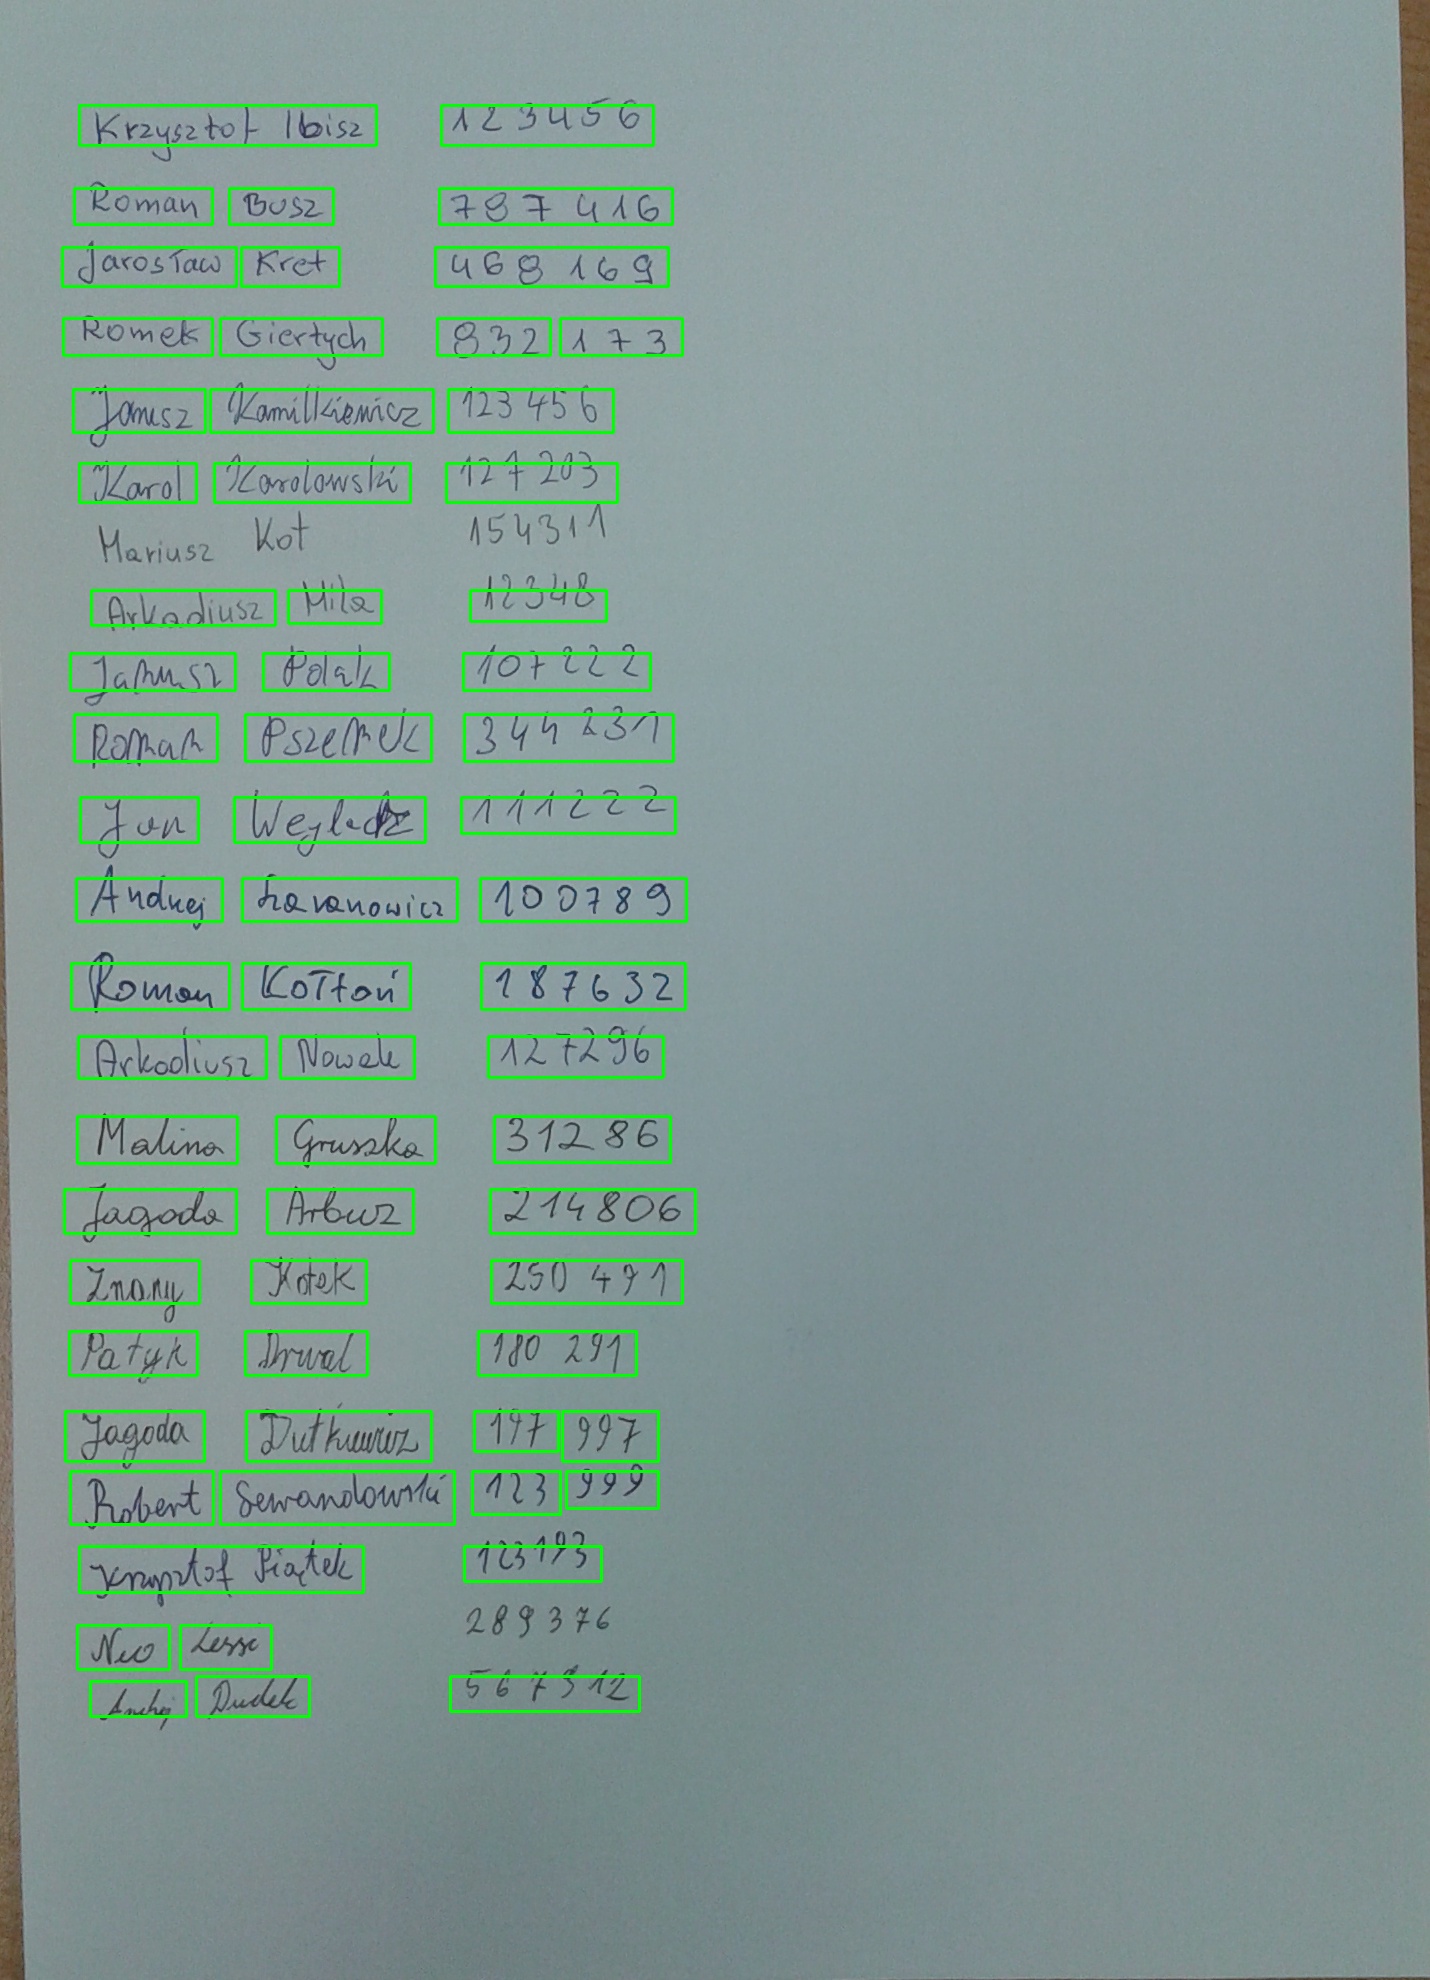 Krzysztof Ibisz 123456
Roman Busz 787 416
Jarosław Kret 468 169
Romek Giertych 832 173
Janusz Kamilkiewicz 123 456
Karol Karolowski 127 203
Mariusz Kot 154311
Arkadiusz Mila 12348
Janusz Polak 107222
Roman Pszemek 344 231
Jan 111222
Andrzej 100789
Roman Kołtoń 187632
Arkadiusz Nowak 127296
Malina Gruszka 31286
Jagoda Arbuz 214806
Znany Kotek 250 471
Patyk Drwal 180 291
Jagoda Dutkiewicz 197 997
Robert Lewandowski 123 999
Krzysztof Piątek 123193
289376
Dudek 567312